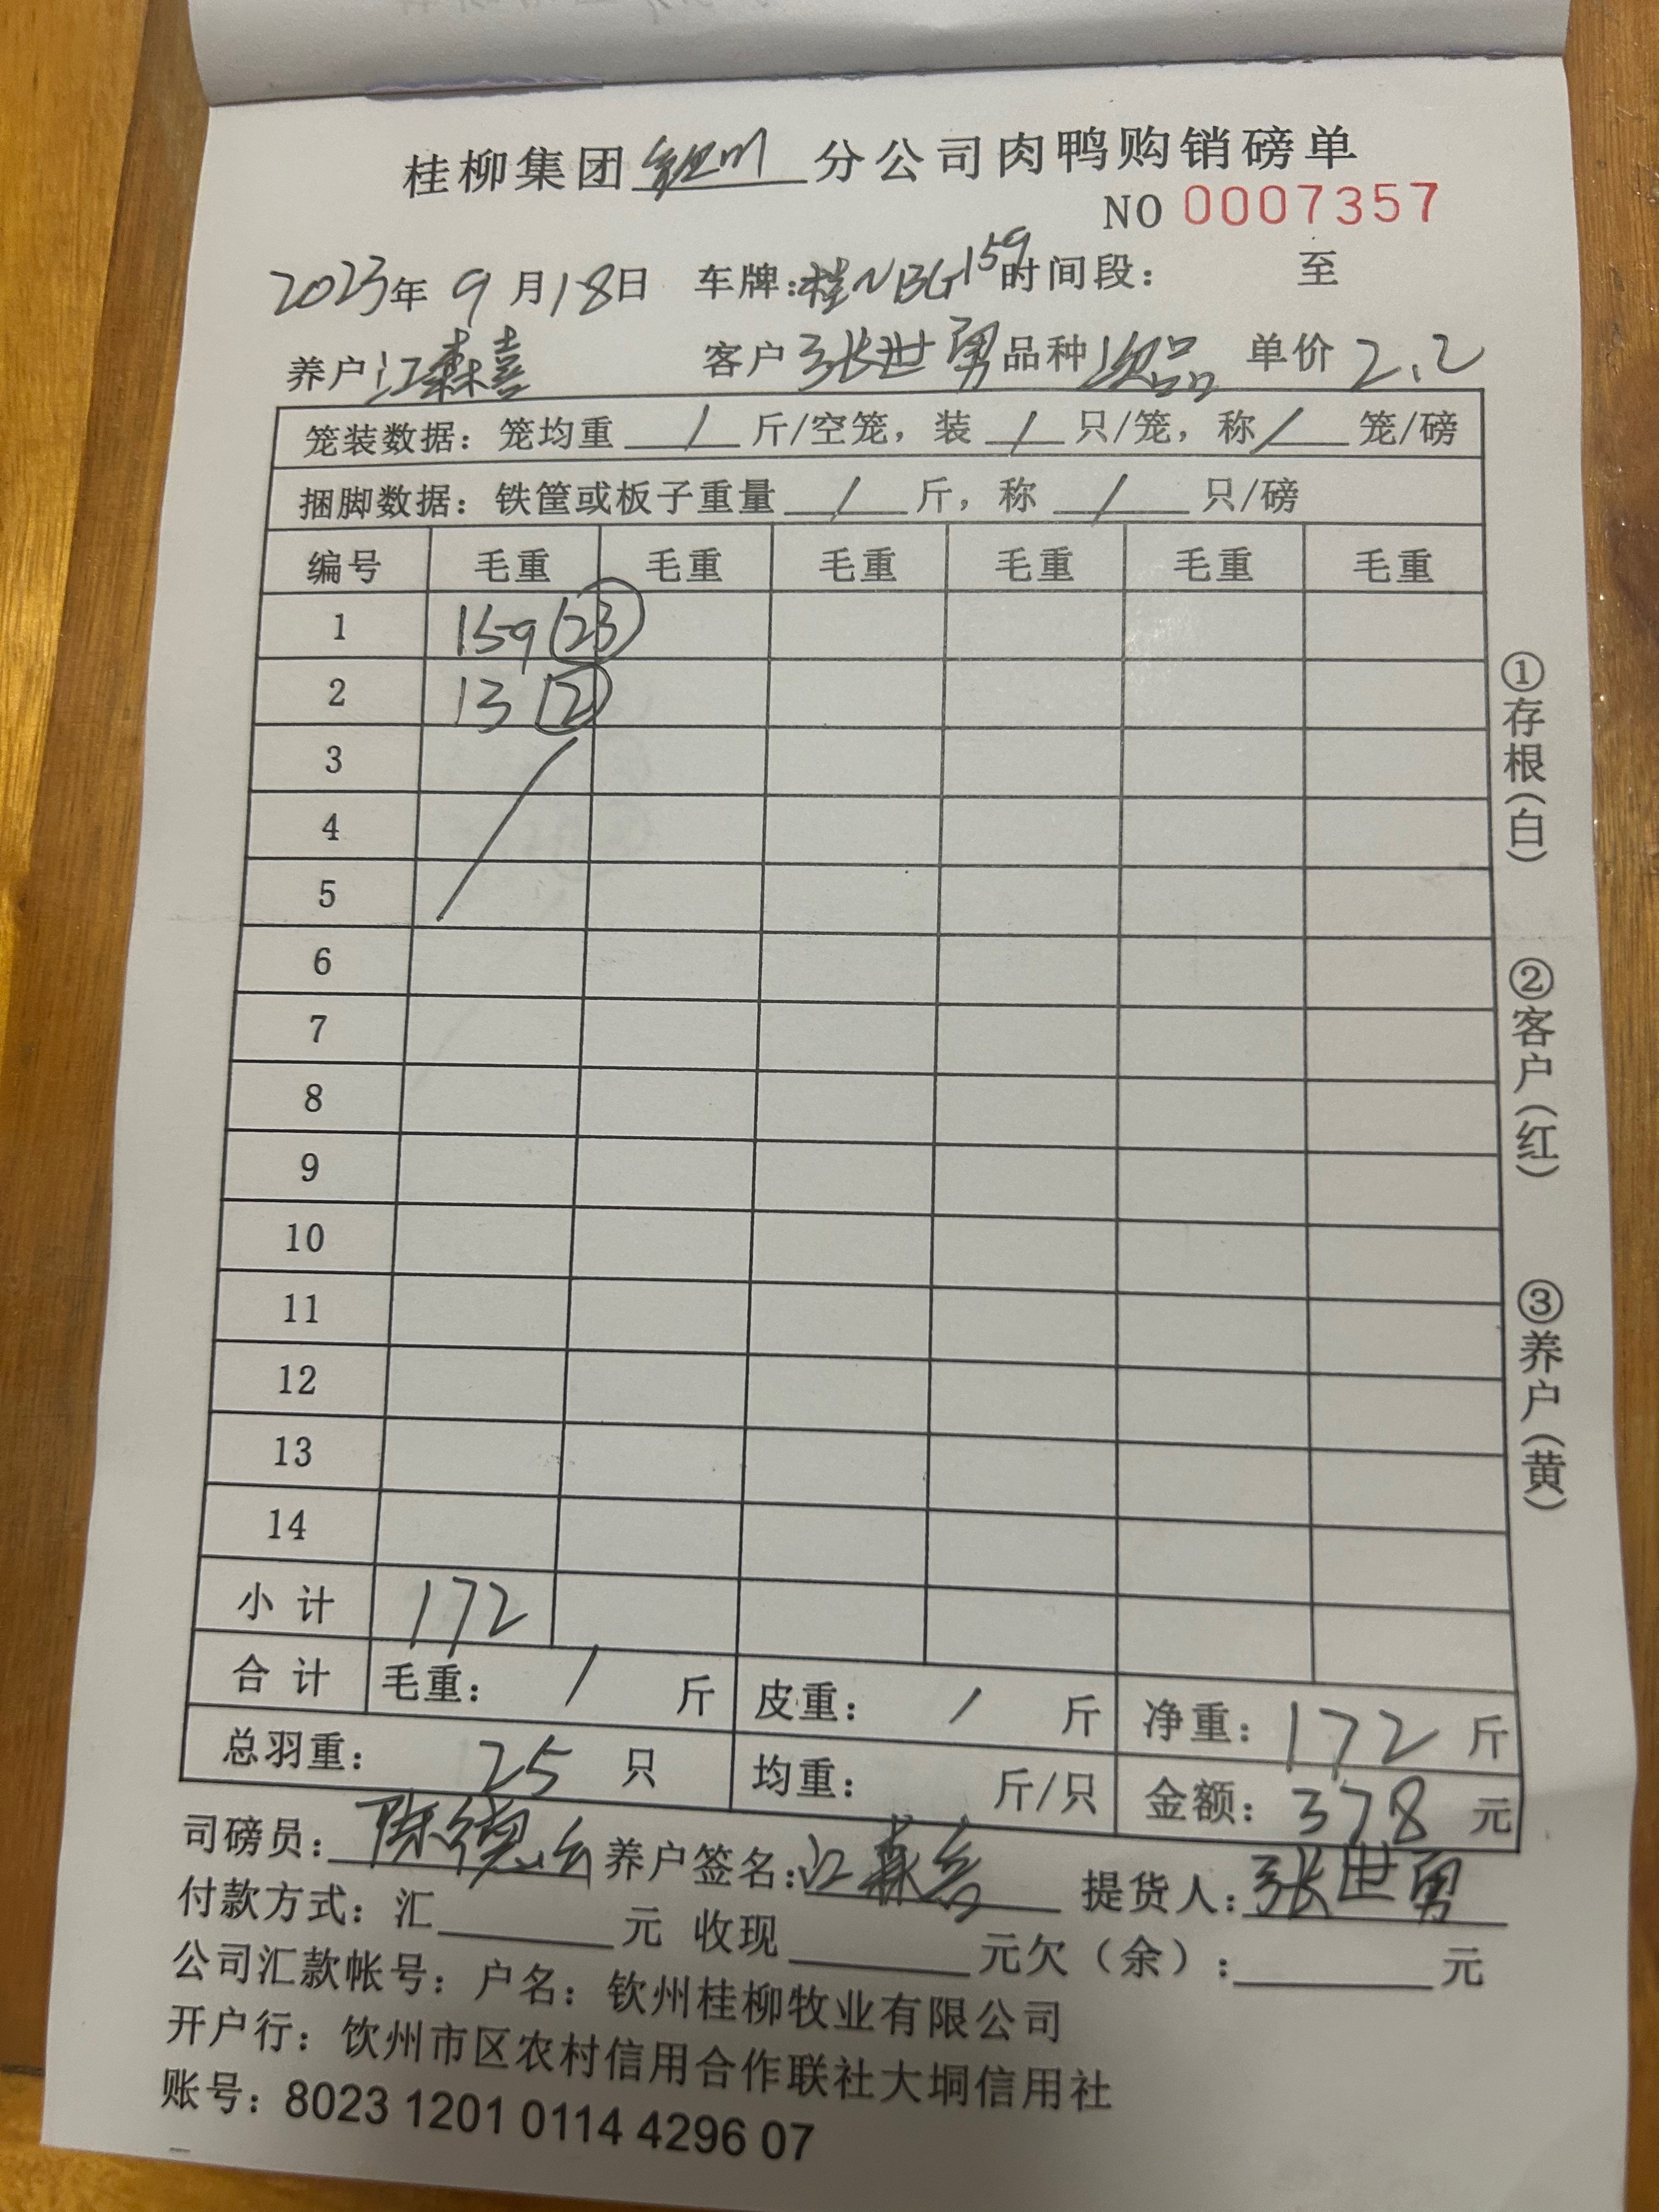 桂柳集团 钦州 分公司肉鸭购销磅单
NO 0007357
2023年 9 月 18 日 车牌:桂NBG159 时间段: 至
养户 江森喜 客户 张世勇 品种 次品 单价 2.2
笼装数据: 笼均重 / 斤/空笼, 装 / 只/笼, 称 / 笼/磅
捆脚数据: 铁筐或板子重量 / 斤, 称 / 只/磅
编号 毛重 毛重 毛重 毛重 毛重 毛重
1 159 (23)
2 13 (2)
3
4
5
6
7
8
9
10
11
12
13
14
小计 172
合计 毛重: / 斤 皮重: / 斤 净重: 172 斤
总羽重: 25 只 均重: 斤/只 金额: 378 元
司磅员: 陈德 养户签名: 江森喜 提货人: 张世勇
付款方式: 汇 元 收现 元欠(余): 元
公司汇款帐号: 户名: 钦州桂柳牧业有限公司
开户行: 饮州市区农村信用合作联社大垌信用社
账号: 8023 1201 0114 4296 07
①存根(白)
②客户(红)
③养户(黄)